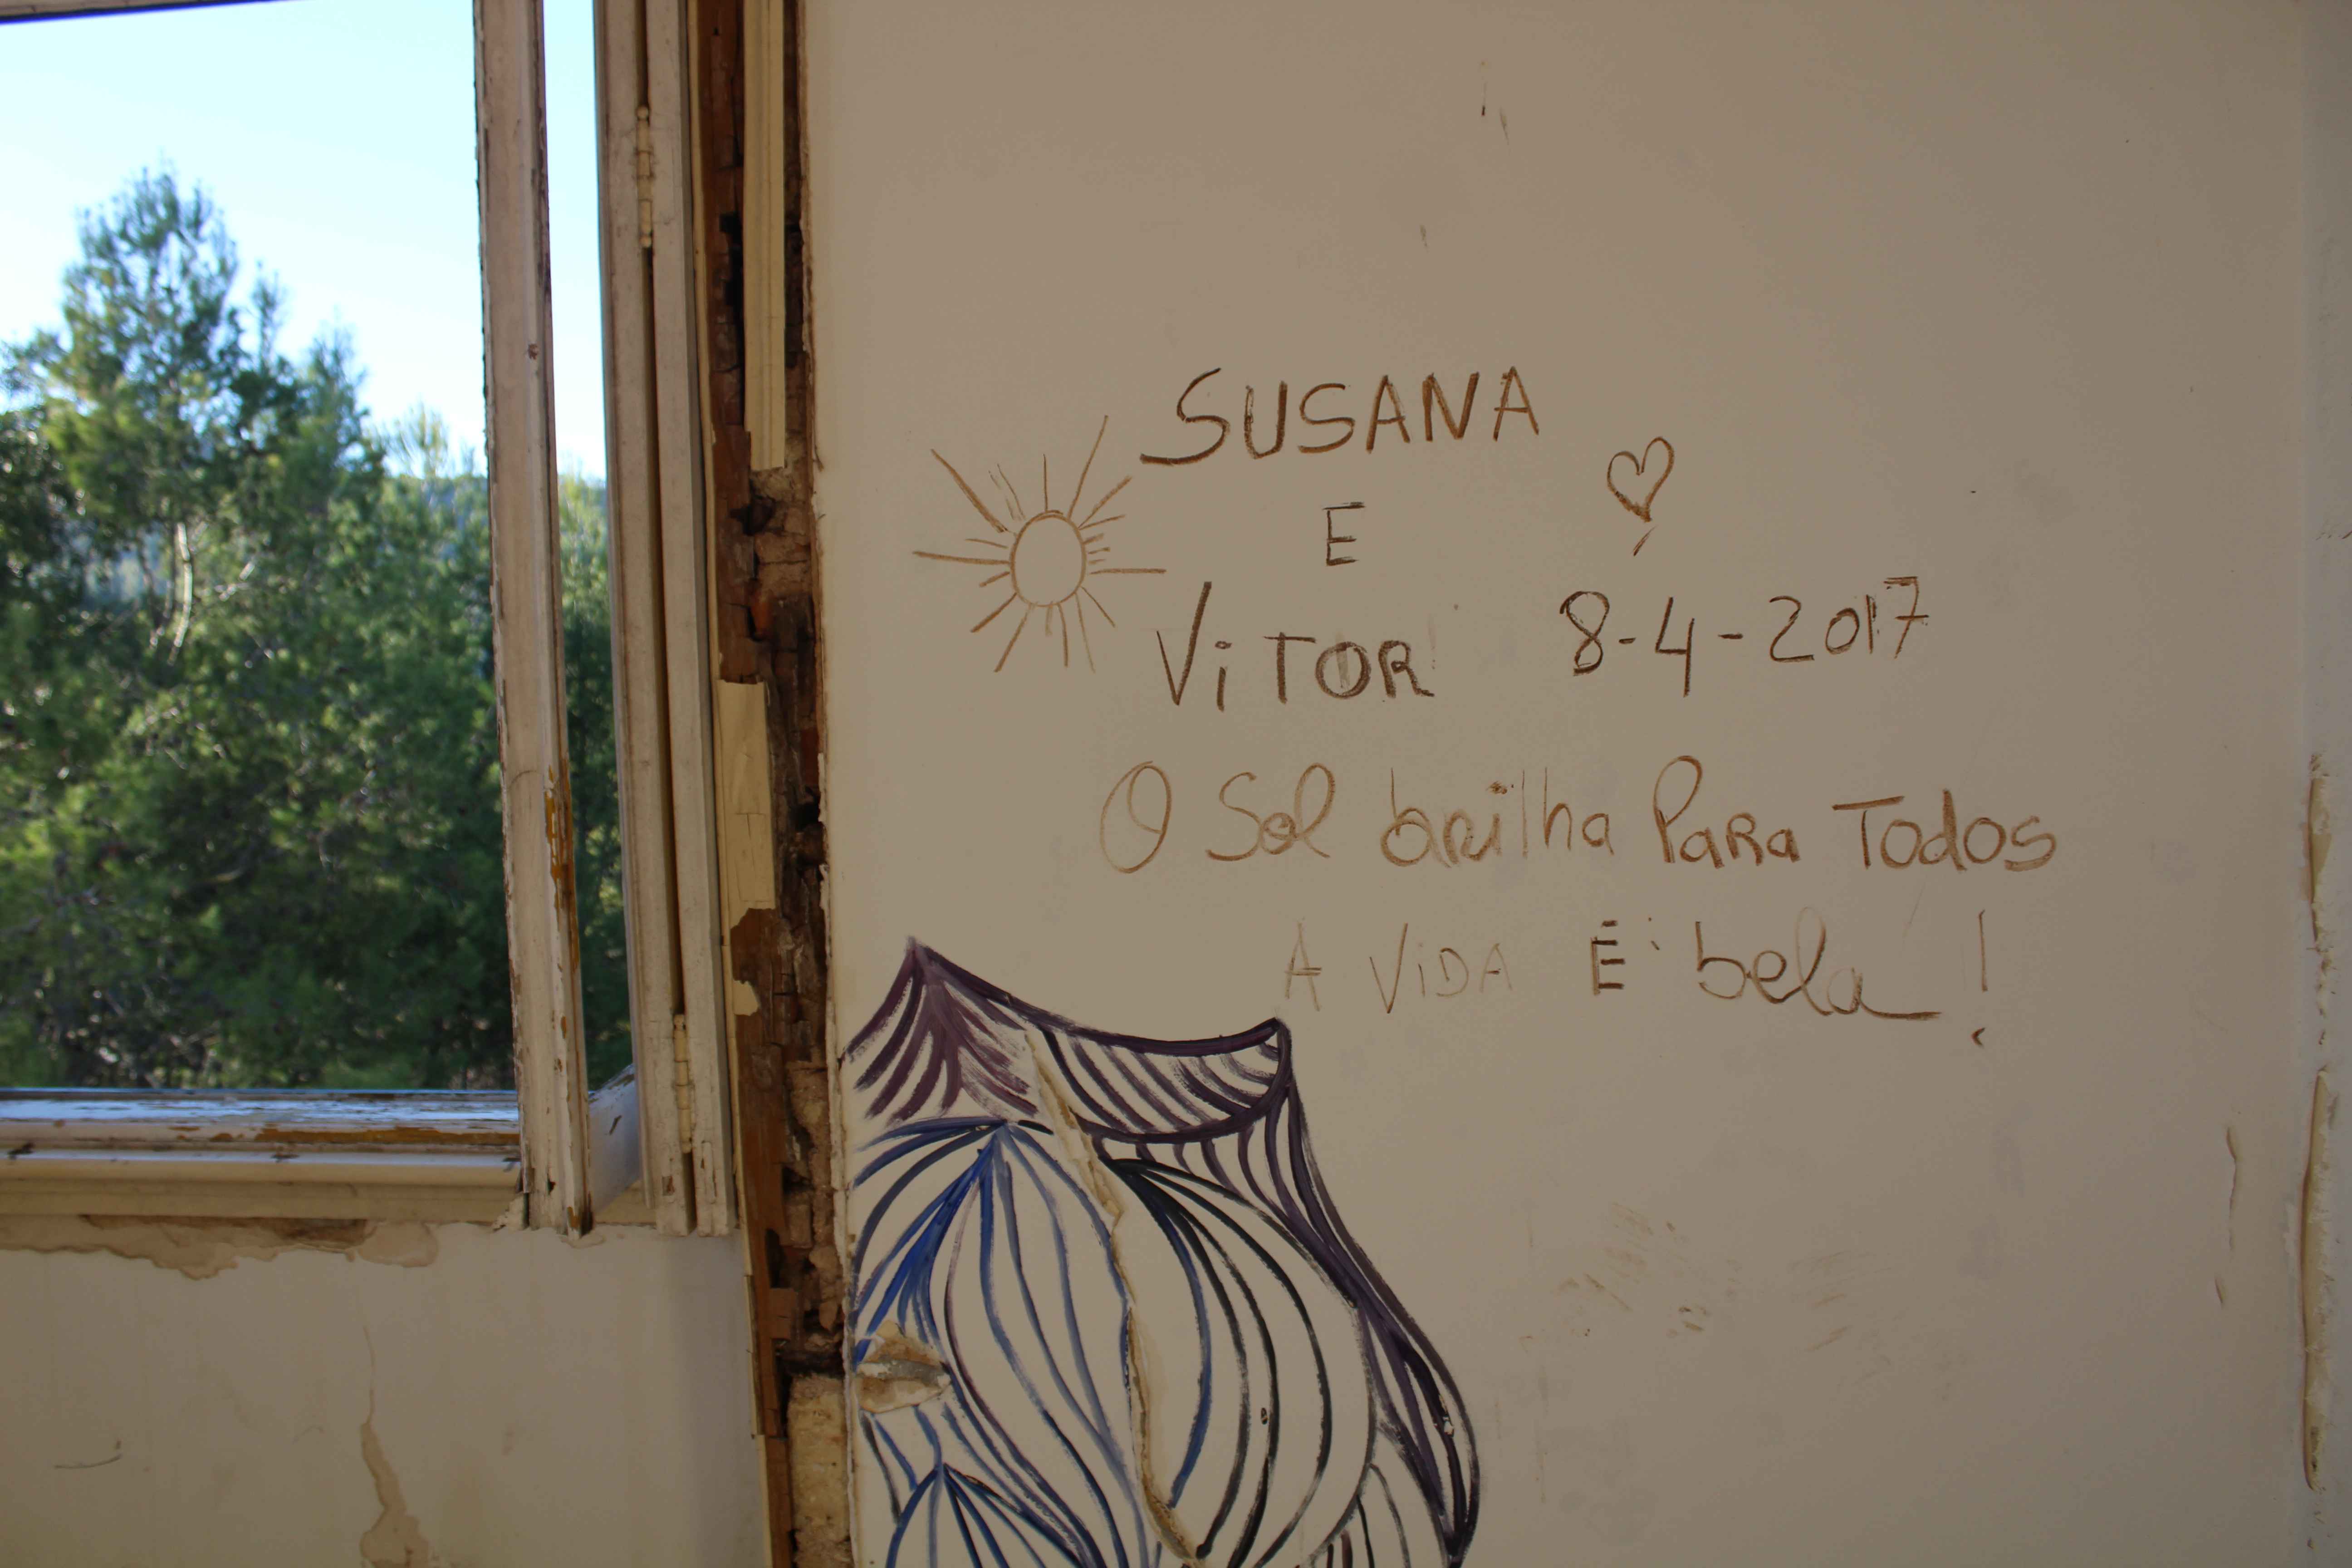 SUSANA
E
ViTOR 8-4-2017
O Sol brilha Para Todos
A ViDA É bela !